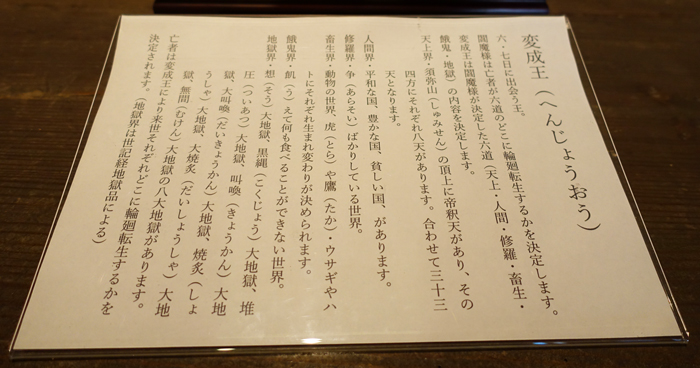 変成王（へんじょうおう）
六・七日に出会う王。
閻魔様は亡者が六道のどこに輪廻転生するかを決定します。
変成王は閻魔様が決定した六道（天上・人間・修羅・畜生・
餓鬼・地獄）の内容を決定します。
天上界・須弥山（しゅみせん）の頂上に帝釈天があり、その
四方にそれぞれ八天があります。合わせて三十三
天となります。
人間界・平和な国、豊かな国、貧しい国、があります。
修羅界・争（あらそい）ばかりしている世界。
畜生界・動物の世界、虎（とら）や鷹（たか）・ウサギやハ
トにそれぞれ生まれ変わりが決められます。
餓鬼界・飢（う）えて何も食べることができない世界。
地獄界・想（そう）大地獄、黒縄（こくじょう）大地獄、堆
圧（ついあつ）大地獄、叫喚（きょうかん）大地
獄、大叫喚（だいきょうかん）大地獄、焼炙（しょ
うしゃ）大地獄、大焼炙（だいしょうしゃ）大地
獄、無間（むけん）大地獄の八大地獄があります。
亡者は変成王により来世それぞれどこに輪廻転生するかを
決定されます。（地獄界は世記経地獄品による）